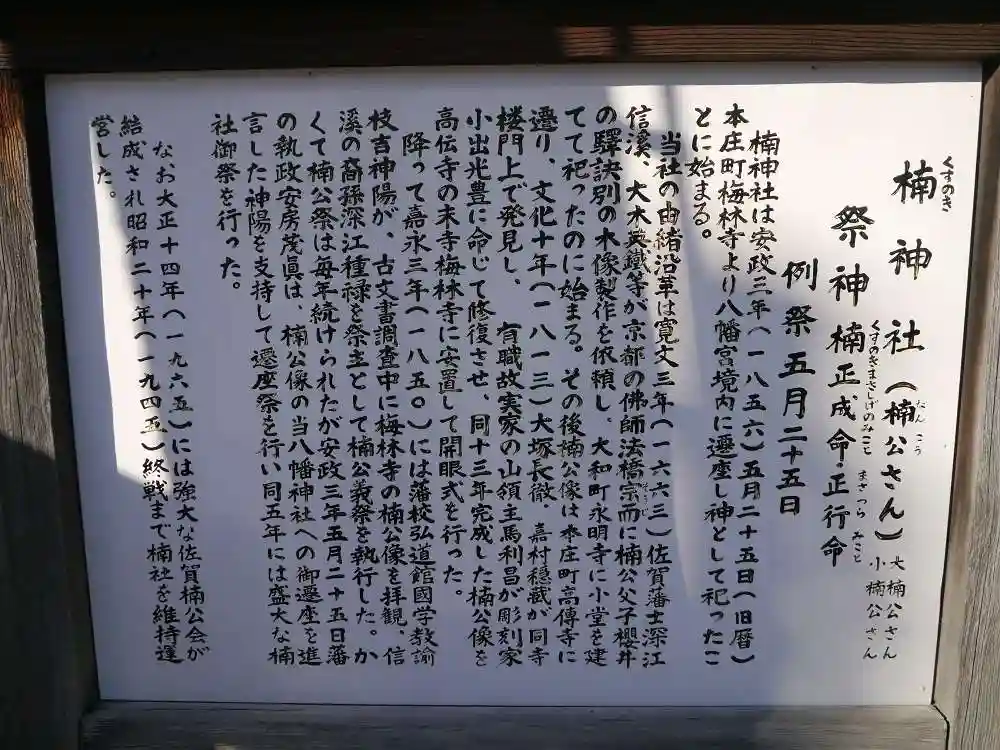 楠神社（楠公さん）大楠公さん 小楠公さん
くすのき
なんこう
祭神 楠正成命・正行命
くすのきまさしげのみこと まさつら みこと
例祭 五月二十五日
楠神社は安政三年（一八五六）五月二十五日（旧暦）
本庄町梅林寺より八幡宮境内に遷座し神として祀ったこ
とに始まる。
当社の由緒沿革は寛文三年（一六六三）佐賀藩士深江
信溪、大木英鐵等が京都の佛師法橋宗而に楠公父子櫻井
の驛訣別の木像製作を依頼し、大和町永明寺に小堂を建
てて祀ったのに始まる。その後楠公像は本庄町高傳寺に
遷り、文化十年（一八一三）大塚長徹、嘉村穏蔵が同寺
楼門上で発見し、有職故実家の山領主馬利昌が彫刻家
小出光豊に命じて修復させ、同十三年完成した楠公像を
高伝寺の末寺梅林寺に安置して開眼式を行った。
降って嘉永三年（一八五〇）には藩校弘道館國学教諭
枝吉神陽が、古文書調査中に梅林寺の楠公像を拝観、信
溪の裔孫深江種禄を祭主として楠公義祭を執行した。か
くて楠公祭は毎年続けられたが安政三年五月二十五日藩
の執政安房茂眞は、楠公像の当八幡神社への御遷座を進
言した神陽を支持して遷座祭を行い同五年には盛大な楠
社御祭を行った。
なお大正十四年（一九六五）には強大な佐賀楠公会が
結成され昭和二十年（一九四五）終戦まで楠社を維持運
営した。